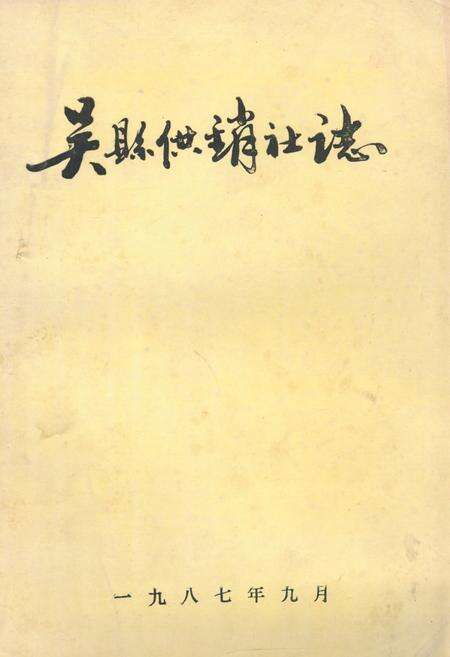 吴縣供销社誌
一九八七年九月